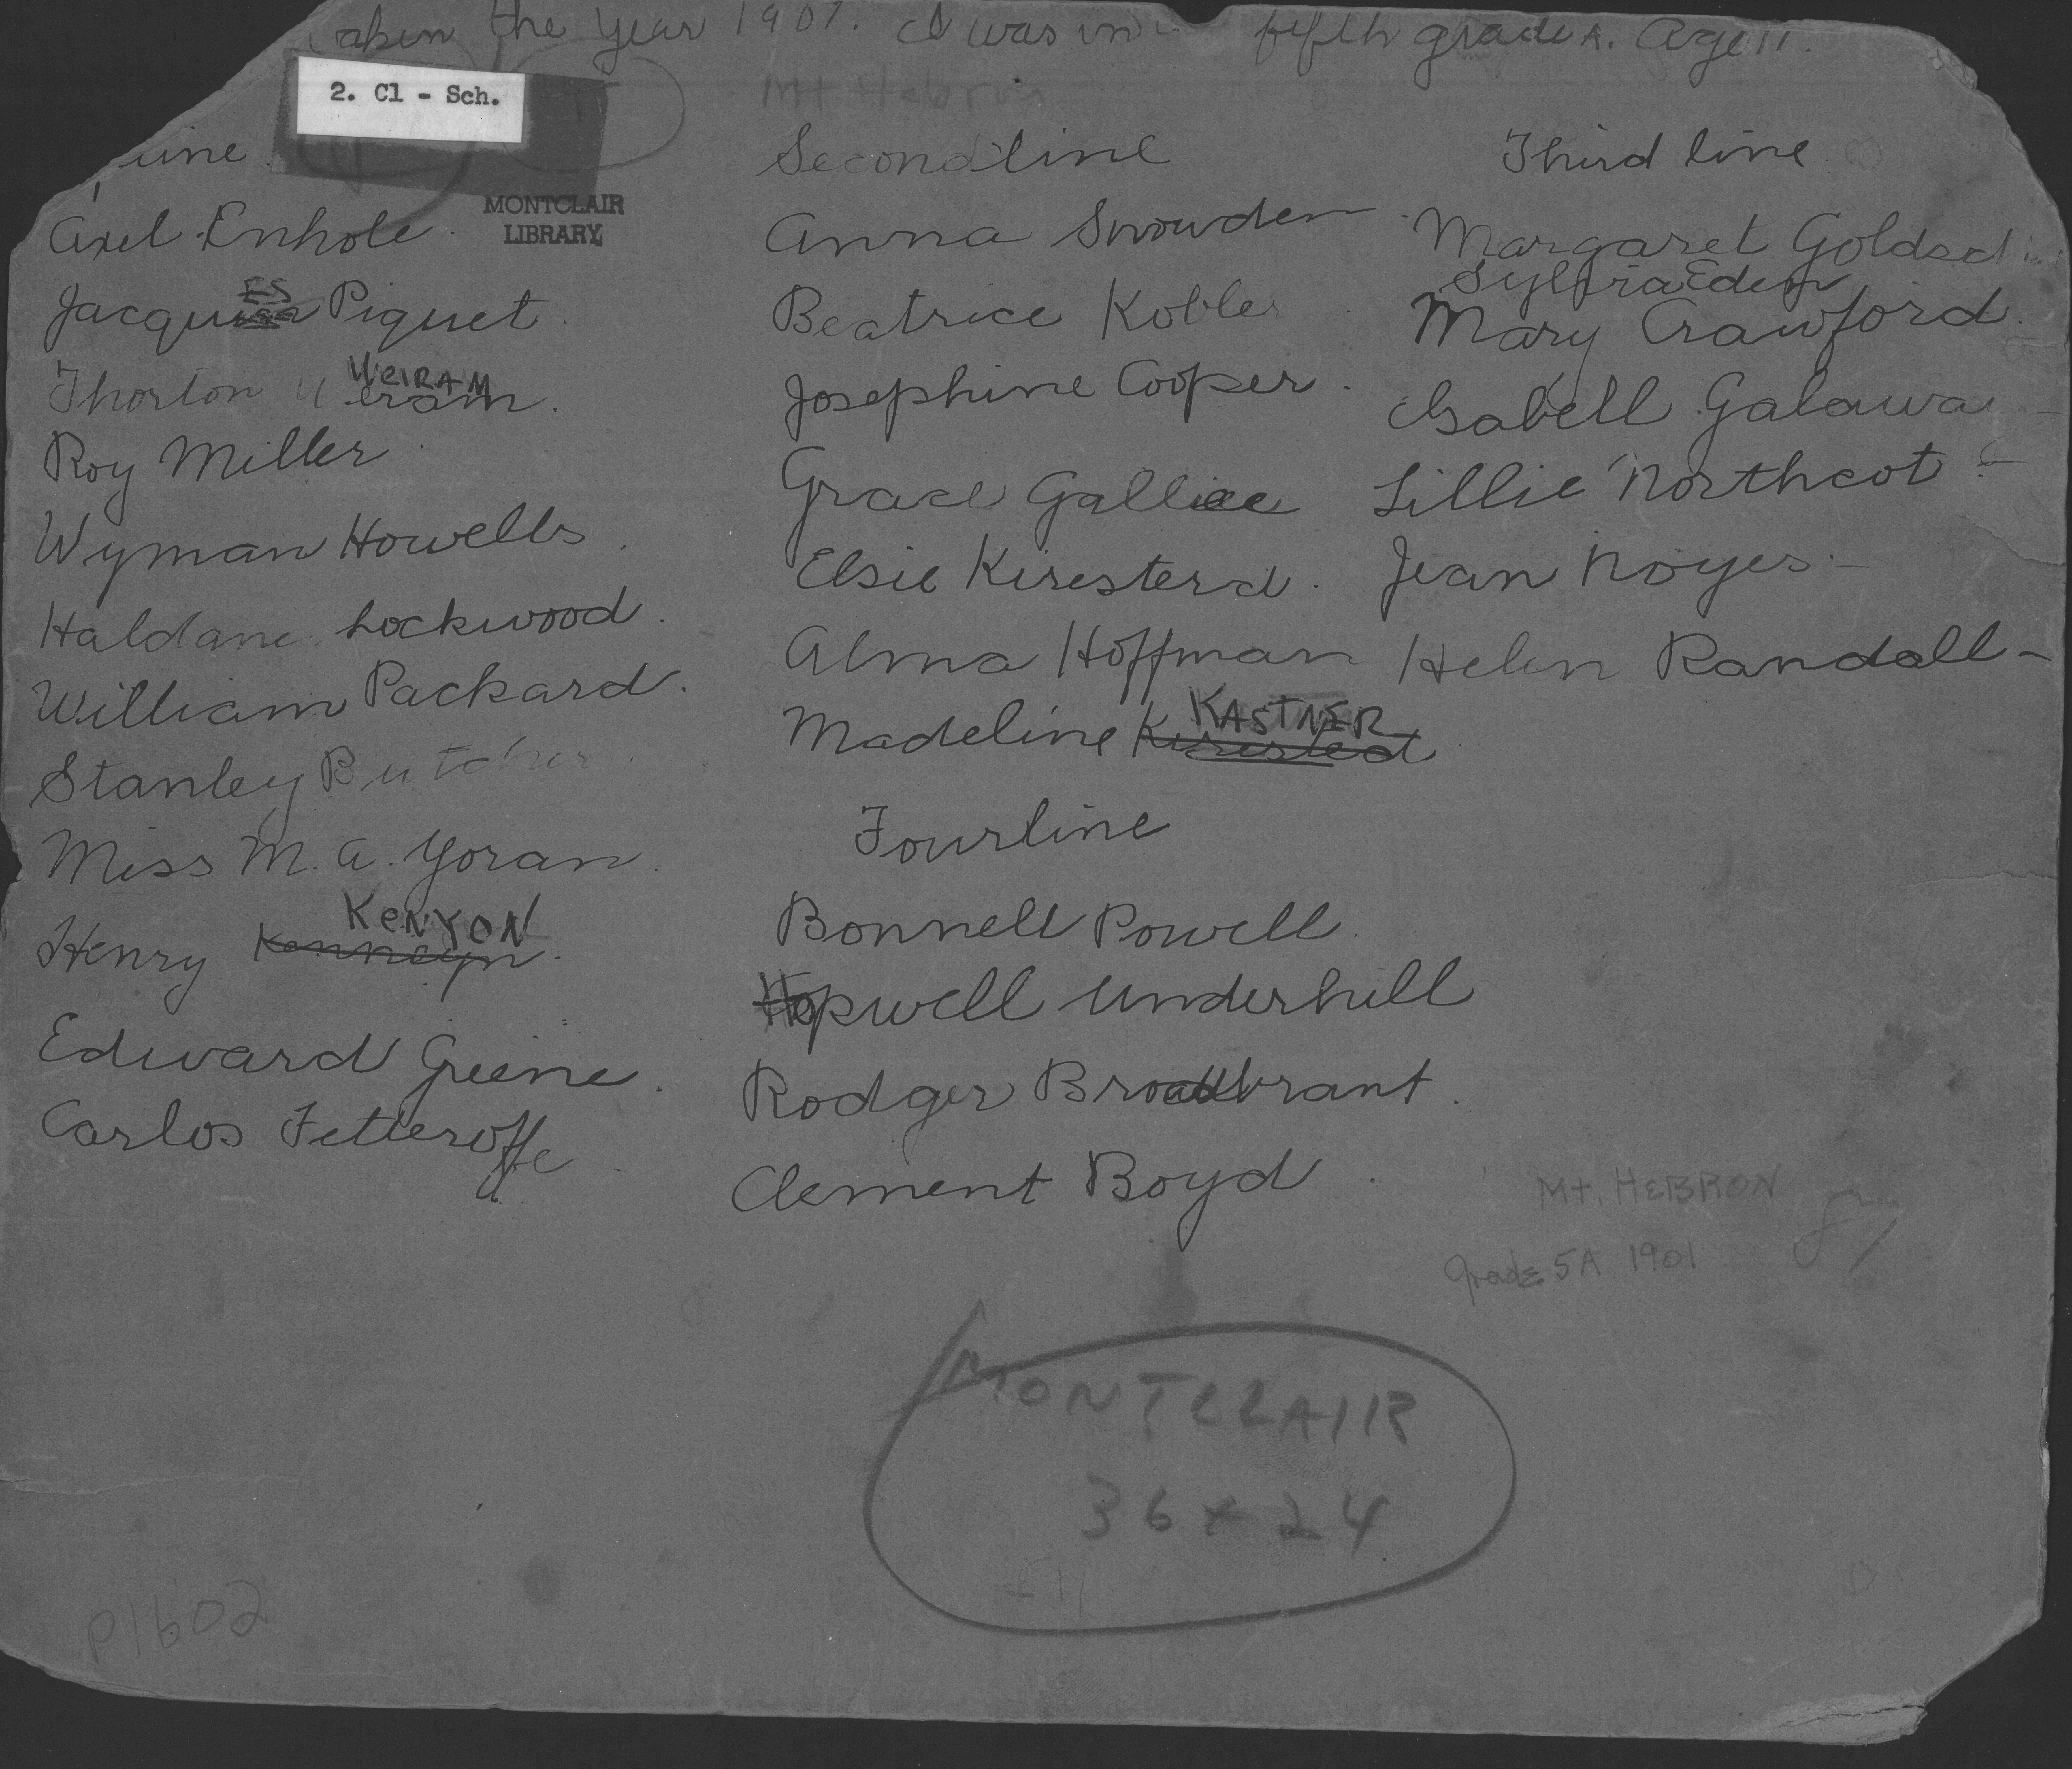 aken the year 1901. I was in fifth grade A. Age 11.
2. Cl - Sch.
Mt Hebron
MONTCLAIR
LIBRARY
line
Axel Enhole.
Jacques ES Piquet.
Thorlon Weram WeIRAM.
Roy Miller
Wyman Howells.
Haldane Lockwood.
William Packard.
Stanley Butcher.
Miss M. A. Yoran.
Henry Kenneyn KeNYON.
Edward Greene.
Carlos Fetteroffe
Second line
Anna Snowden
Beatrice Kobler
Josephine Cooper.
Grace Gallice
Elsie Kiresterd.
Alma Hoffman
Madeline Kirested KASTNER
Four line
Bonnell Powell
Hopwell Underhill
Rodger Broadbrant.
Clement Boyd.
Third line
Margaret
Sylvia Eden
Mary Crawford.
Isabell Galaway
Lillie Northcot
Jean Noyes
Helen Randall
Mt. HEBRON
Grade 5A 1901
MONTCLAIR
36 x 24
P1602